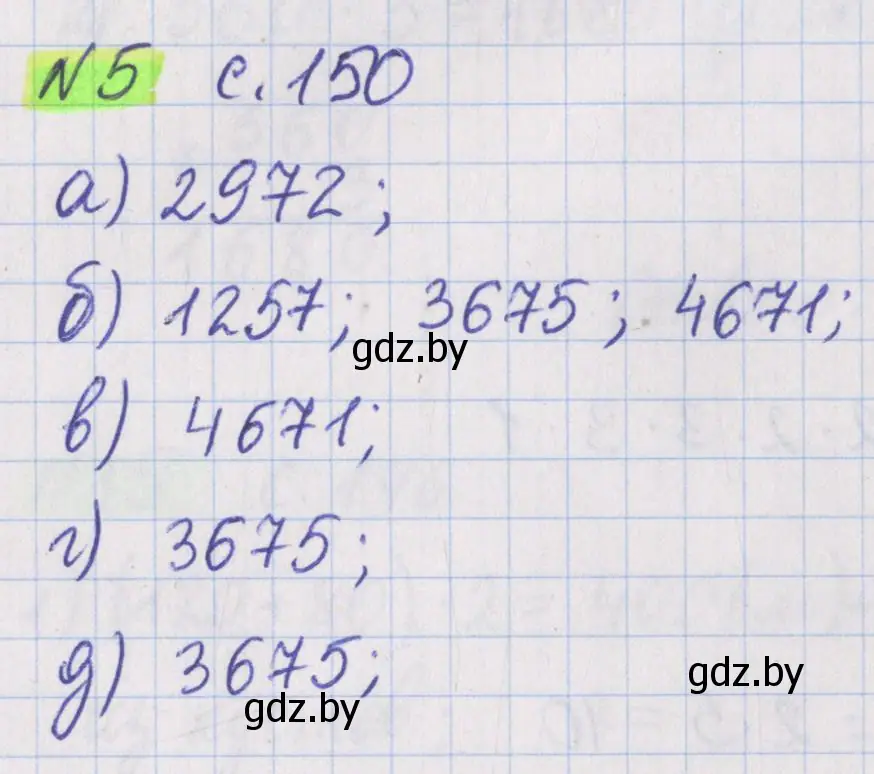 №5 с. 150
а) 2972;
б) 1257; 3675; 4671;
gdz.by
в) 4671;
г) 3675;
д) 3675;
gdz.by
gdz.by